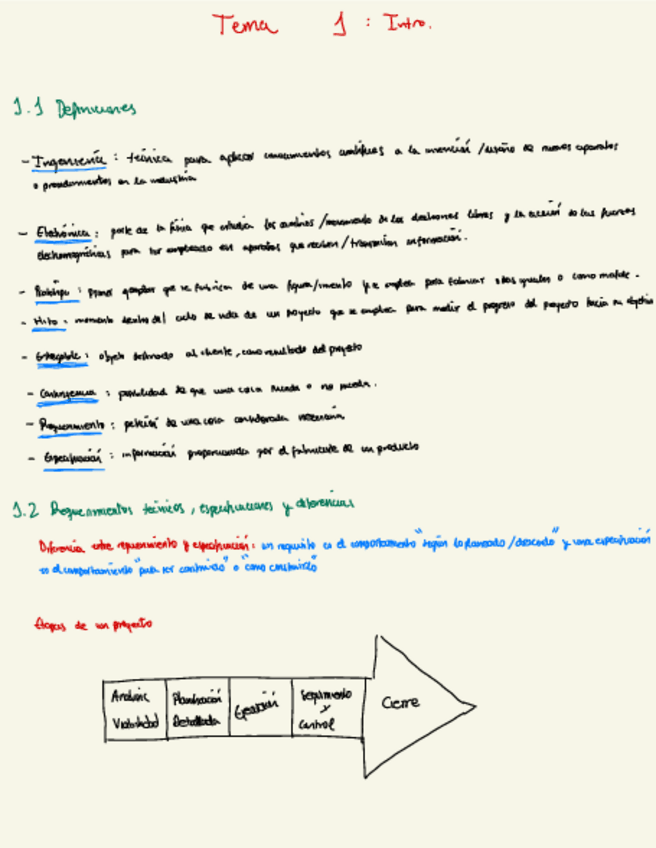 Tema 1 : Intro.
1.1 Definiciones
- Ingeniería : técnica para aplicar conocimientos científicos a la invención / diseño de nuevos aparatos
o procedimientos en la industria
- Electrónica : parte de la física que estudia los cambios / movimiento de los electrones libres y la acción de las fuerzas
electromagnéticas para ser empleado en aparatos que reciben / transmiten información.
- Prototipo : primer ejemplar que se fabrica de una figura / invento que se emplea para fabricar otras iguales o como molde.
- Hito : momento dentro del ciclo de vida de un proyecto que se emplea para medir el progreso del proyecto hacia su objetivo
- Entregable : objeto destinado al cliente, como resultado del proyecto
- Contingencia : posibilidad de que una cosa suceda o no suceda.
- Requerimiento : petición de una cosa considerada necesaria
- Especificación : información proporcionada por el fabricante de un producto
1.2 Requerimientos técnicos, especificaciones y diferencias
Diferencia entre requerimiento y especificación : un requisito es el comportamiento "según lo planeado / deseado" y una especificación
es el comportamiento "para ser construido" o "como construido"
Etapas de un proyecto
Analisis Viabilidad
Planificación Detallada
Ejecución
Seguimiento y Control
Cierre